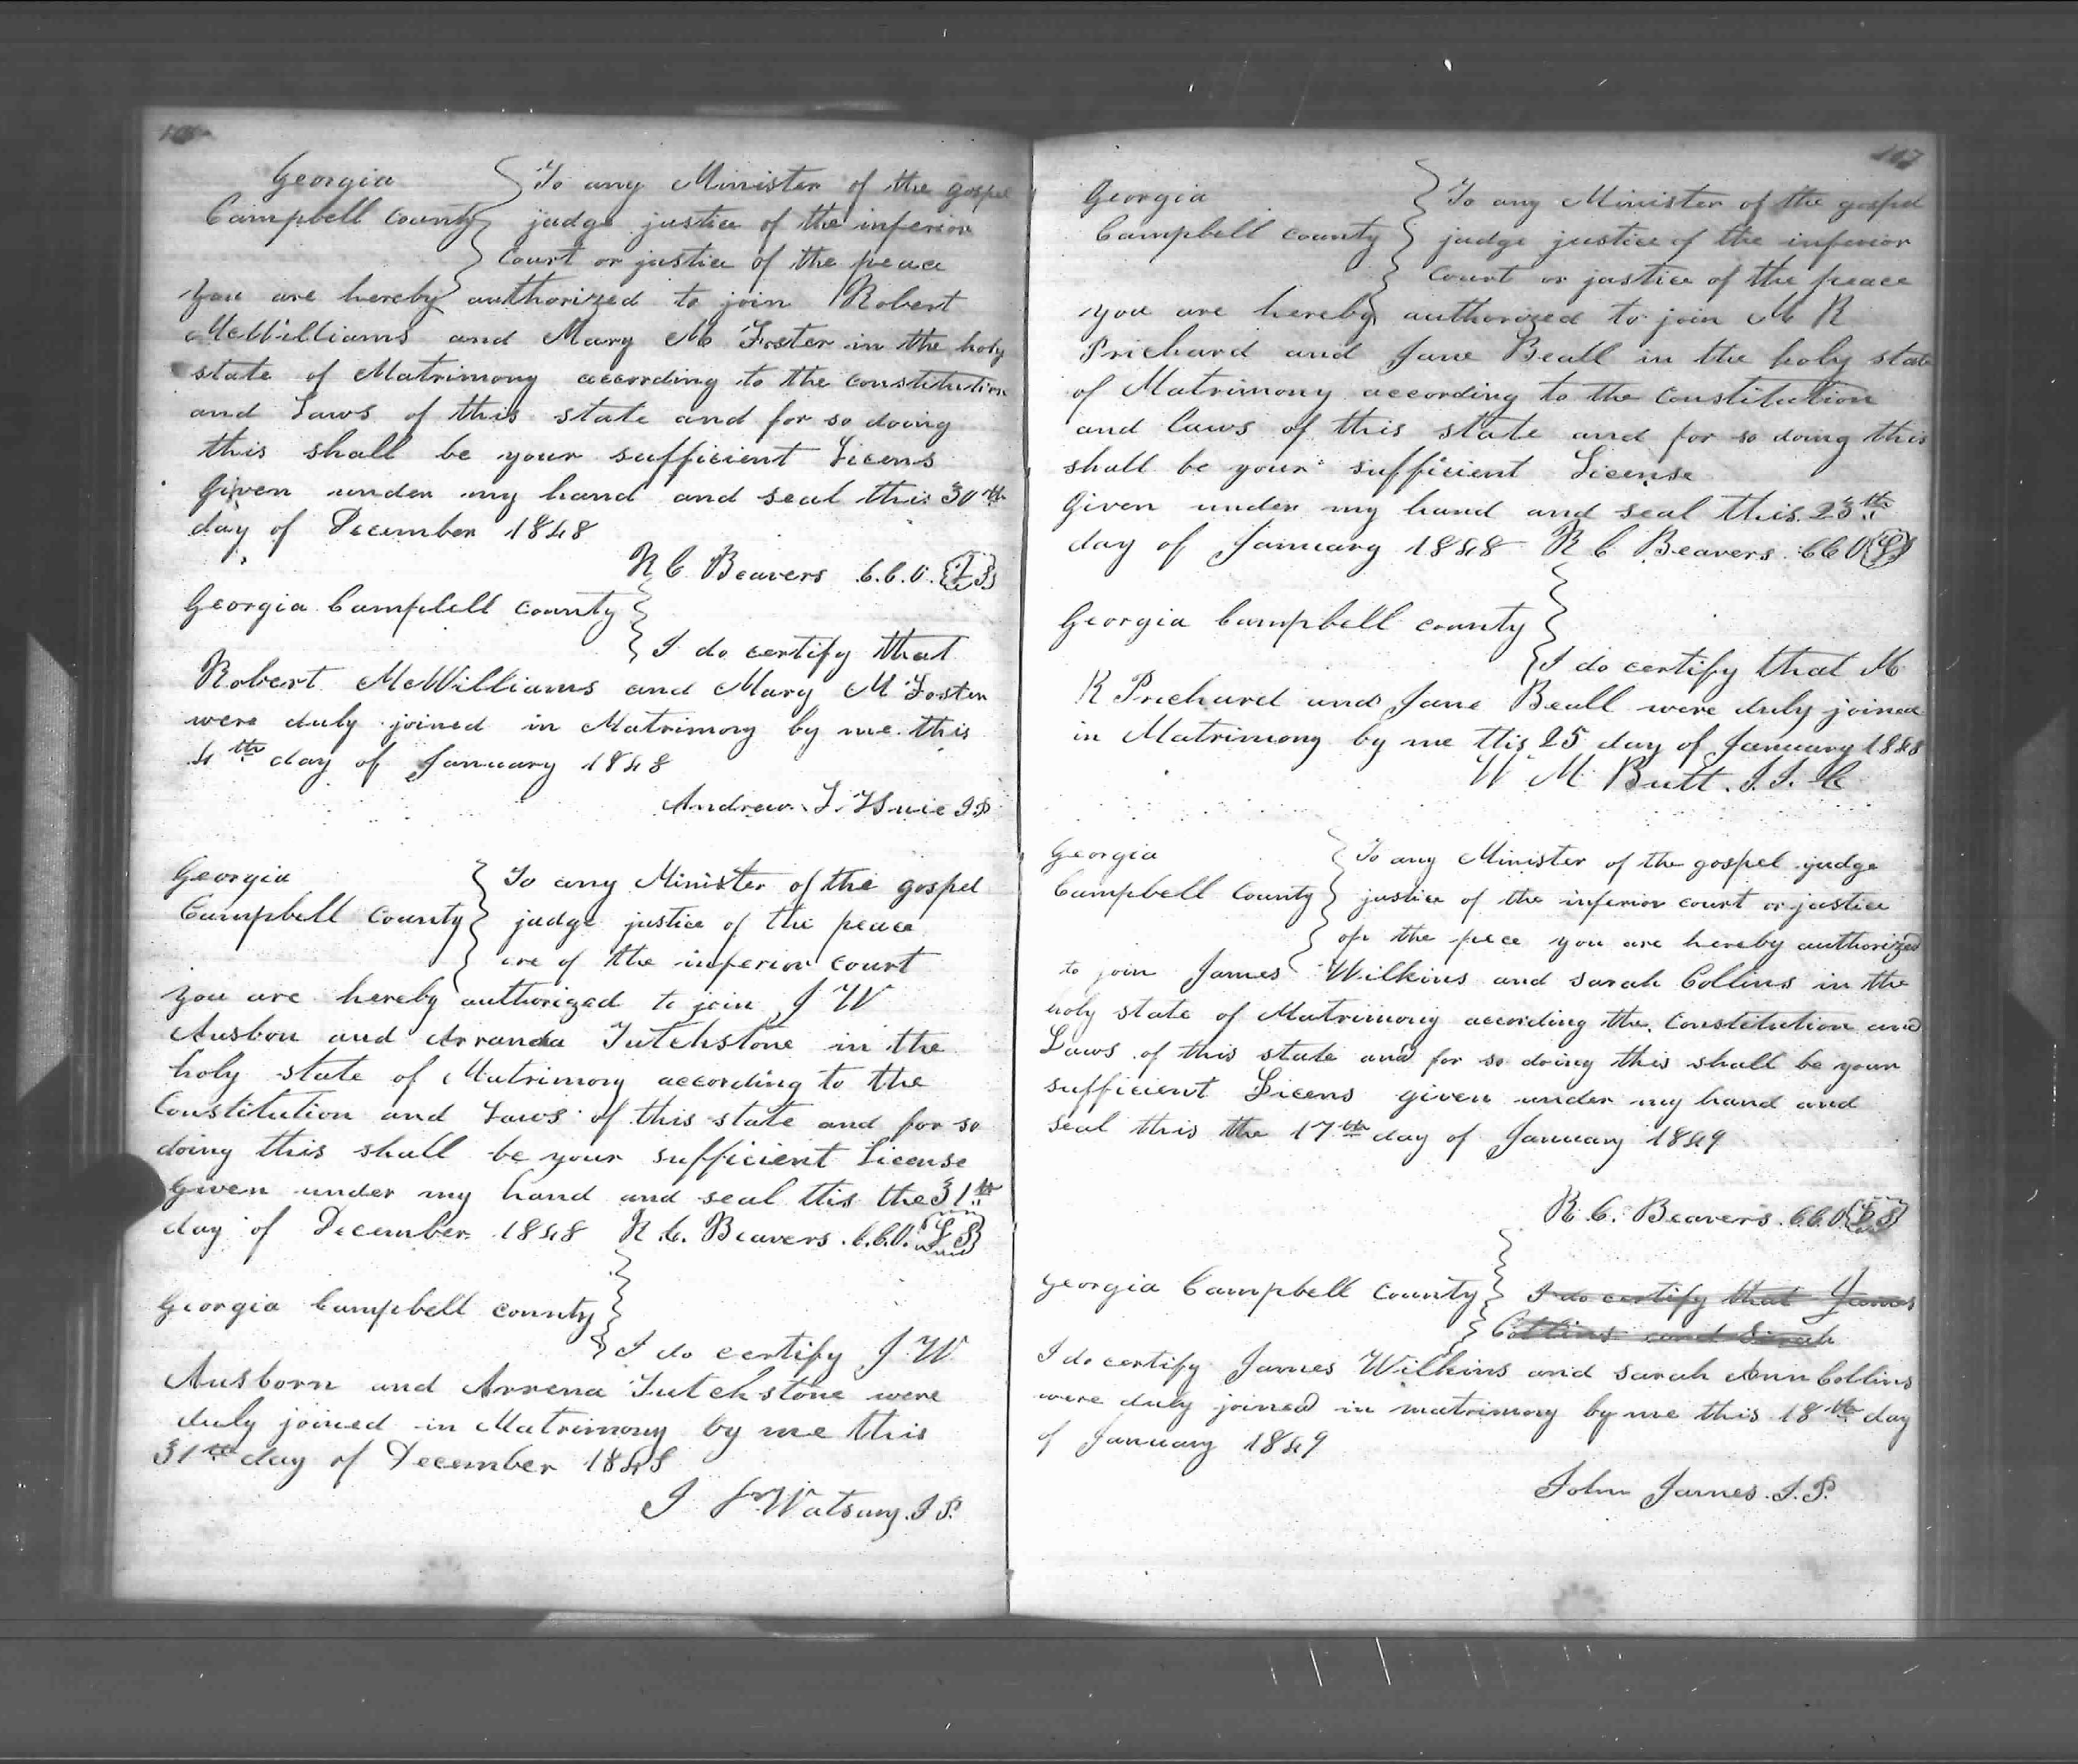 Georgia
Campbell county
To any Minister of the gospel
judge justice of the inferior
Court or justice of the peace
you are hereby authorized to join Robert
McWilliams and Mary M Foster in the holy
state of Matrimony according to the constitution
and Laws of this state and for so doing
this shall be your sufficient Licens
Given under my hand and seal this 30th
day of December 1848
R C Beavers C.C.O. L S
Georgia Campbell county
I do certify that
Robert McWilliams and Mary M Foster
were duly joined in Matrimony by me this
4th day of January 1848
Andrew J. Huie J.P
Georgia
Campbell county
To any Minister of the gospel
judge justice of the peace
are of the inferior court
you are hereby authorized to join J W
Ausbon and Arranda Tutchstone in the
holy state of Matrimony according to the
Constitution and Laws of this state and for so
doing this shall be your sufficient License
Given under my hand and seal this the 31th
day of December 1848 R. C. Beavers. C.C.O. L S
Georgia Campbell county
I do certify J. W
Ausborn and Arrena Tutchstone were
duly joined in Matrimony by me this
31th day of December 1848
J. P.
107
Georgia
Campbell county
To any Minister of the gospel
judge justice of the inferior
Court or justice of the peace
you are hereby authorized to join M R
Prichard and Jane Beall in the holy state
of Matrimony according to the Constitution
and Laws of this state and for so doing this
shall be your sufficient License
Given under my hand and seal this 23th
day of January 1848 R C Beavers. CCO LS
Georgia Campbell county
I do certify that M
R Prichard and Jane Beall were duly joined
in Matrimony by me this 25 day of January 1848
W M Butt. J. I. C
Georgia
Campbell County
To any Minister of the gospel judge
justice of the inferior court or justice
of the pece you are hereby authorized
to join James Wilkins and Sarah Collins in the
holy state of Matrimony according the Constitution and
Laws of this state and for so doing this shall be your
sufficient Licens given under my hand and
seal this the 17th day of January 1849
R. C. Beavers. C.C.O. L S
Georgia Campbell county
I do certify that James
Collins and Sarah
I do certify James Wilkins and Sarah Ann Collins
were duly joined in matrimony by me this 18th day
of January 1849
John James. J. P.